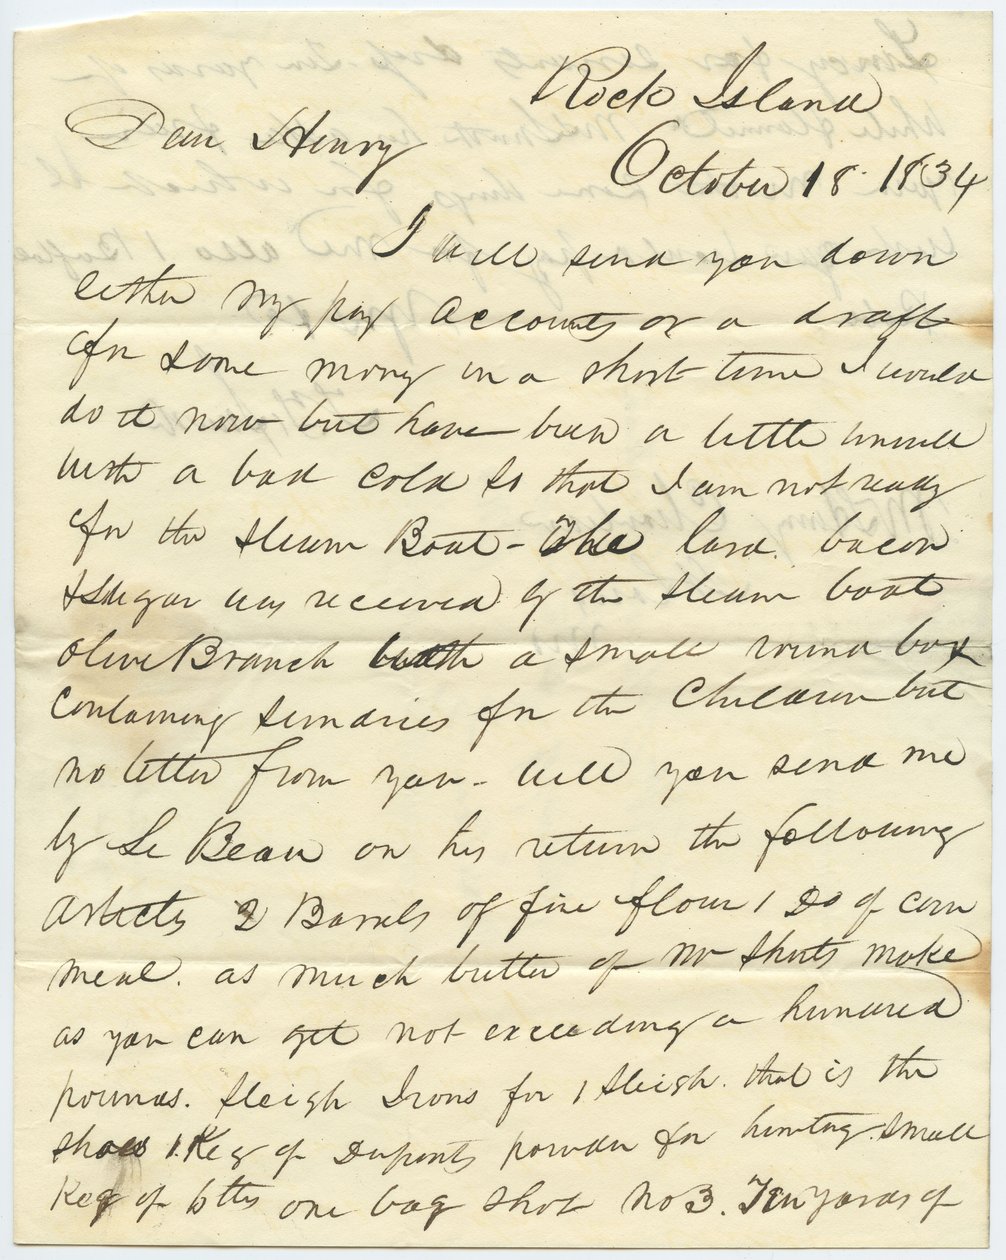 Rock Island
Dear Henry
October 18 1834
I will send you down
either my pay accounts or a draft
for some money in a short time I would
do it now but have been a little unwell
with a bad cold so that I am not ready
for the Steam Boat - The lard. bacon
& Sugar was received by the steam boat
Olive Branch with a small round box
containing sundries for the Children but
no letter from you - will you send me
by Le Beau on his return the following
articles 2 Barrels of fine flour 1 Do of corn
meal. as much butter of Mr Shorts make
as you can get not exceeding a hundred
pounds. Sleigh Irons for 1 Sleigh. that is the
shoes 1 Keg of Duponts powder for hunting. Small
Keg of 6 lbs one bag shot no 3. Ten yards of